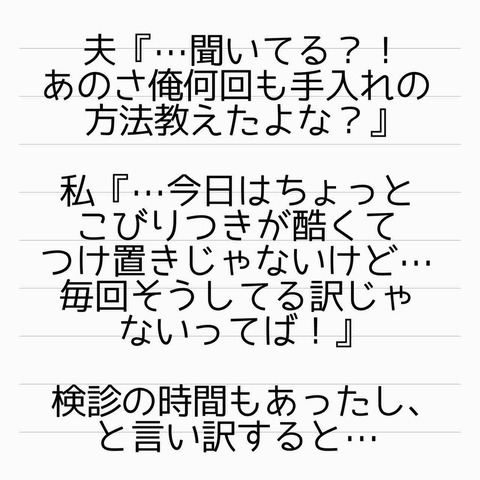 夫『…聞いてる？！
あのさ俺何回も手入れの
方法教えたよな？』
私『…今日はちょっと
こびりつきが酷くて
つけ置きじゃないけど…
毎回そうしてる訳じゃ
ないってば！』
検診の時間もあったし、
と言い訳すると…